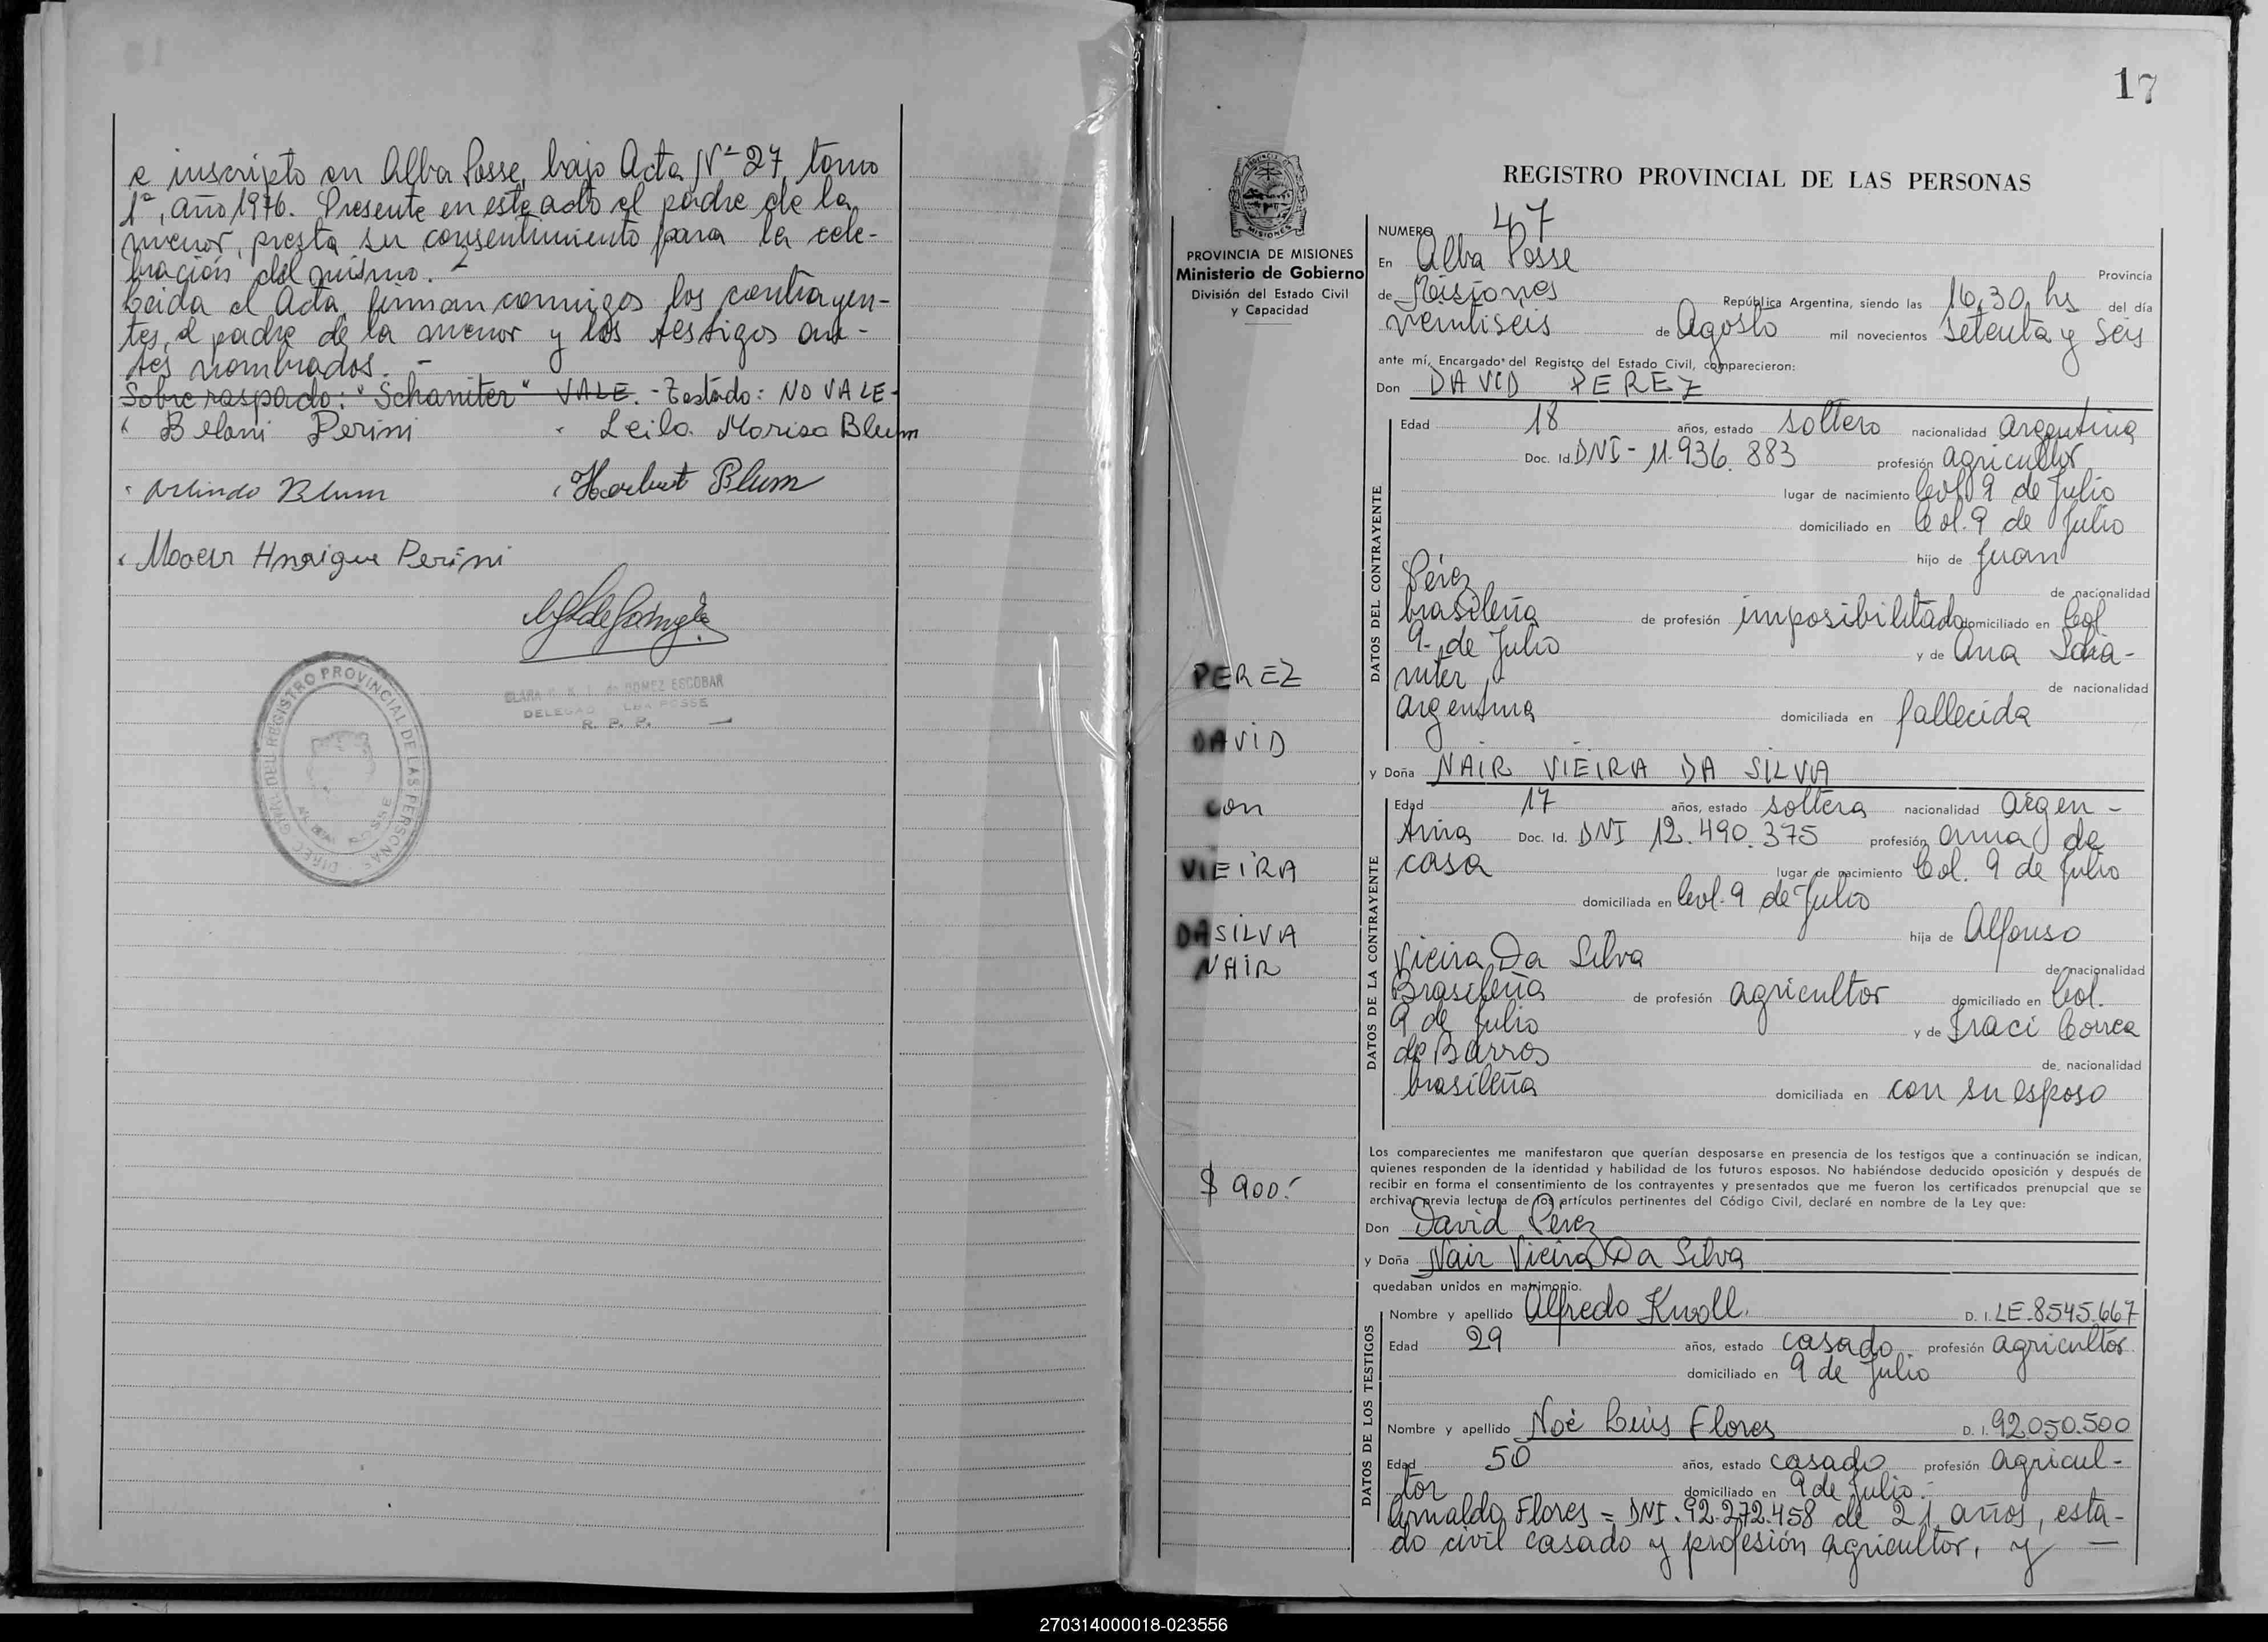 e inscripto en Alba Posse, bajo Acta Nº 27, tomo
1º, año 1976. Presente en este acto el padre de la
menor, presta su consentimiento para la cele-
bración del mismo. -
Leida el Acta, firman conmigo los contrayen-
tes, el padre de la menor y los testigos an-
tes nombrados. -
Sobre raspado: "Schaniter" VALE. - Testado: NO VALE -
Beloni Perini
Leila Marisa Blum
Arlindo Blum
Herbert Blum
Moacir Henrique Perini
GOMEZ ESCOBAR
DELEGAD ALBA POSSE
R. P. P.
DIREC. GRAL. DEL REGISTRO PROVINCIAL DE LAS PERSONAS
ALBA POSSE
17
PROVINCIA DE MISIONES
Ministerio de Gobierno
División del Estado Civil
y Capacidad
PEREZ
DAVID
con
VIEIRA
DA SILVA
NAIR
$ 900.-
REGISTRO PROVINCIAL DE LAS PERSONAS
NUMERO 47
En Alba Posse Provincia
de Misiones República Argentina, siendo las 16,30 hs del día
veintiseis de Agosto mil novecientos setenta y seis
ante mí, Encargado del Registro del Estado Civil, comparecieron:
Don DAVID PEREZ
DATOS DEL CONTRAYENTE
Edad 18 años, estado soltero nacionalidad argentina
Doc. Id. DNI - 11.936.883 profesión agricultor
lugar de nacimiento Col. 9 de Julio
domiciliado en Col. 9 de Julio
hijo de Juan
Pérez de nacionalidad
brasileña de profesión imposibilitado domiciliado en Col
9 de Julio y de Ana Scha-
niter de nacionalidad
argentina domiciliada en fallecida
y Doña NAIR VIEIRA DA SILVA
DATOS DE LA CONTRAYENTE
Edad 17 años, estado soltera nacionalidad argen-
tina Doc. Id. DNI 12.490.375 profesión ama de
casa lugar de nacimiento Col. 9 de Julio
domiciliada en Col. 9 de Julio
hija de Alfonso
Vieira Da Silva de nacionalidad
Brasileña de profesión agricultor domiciliado en Col.
9 de Julio y de Iraci Correa
de Barros de nacionalidad
brasileña domiciliada en con su esposo
Los comparecientes me manifestaron que querían desposarse en presencia de los testigos que a continuación se indican,
quienes responden de la identidad y habilidad de los futuros esposos. No habiéndose deducido oposición y después de
recibir en forma el consentimiento de los contrayentes y presentados que me fueron los certificados prenupcial que se
archiva, previa lectura de los artículos pertinentes del Código Civil, declaré en nombre de la Ley que:
Don David Pérez
y Doña Nair Vieira Da Silva
quedaban unidos en matrimonio.
DATOS DE LOS TESTIGOS
Nombre y apellido Alfredo Knoll. D. I. LE.8545.667
Edad 29 años, estado casado profesión agricultor
domiciliado en 9 de Julio
Nombre y apellido Noé Luis Flores D. I. 92.050.500
Edad 50 años, estado casado profesión agricul-
tor domiciliado en 9 de Julio.-
Arnaldo Flores = DNI. 92.272.458 de 21 años, esta-
do civil casado y profesión agricultor, y —
270314000018-023556